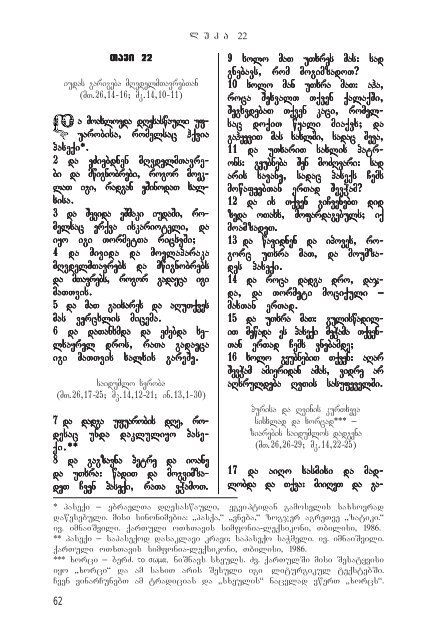 ლ უ კ ა 22
თავი 22
იუდას გარიგება მღვდელმთავრებთან
(მთ.26,14-16; მკ.14,10-11)
და მოახლოვდა დღესასწაული უფუ-
არობისა, რომელსაც ჰქვია
პასექი*.
2 და ეძიებდნენ მღვდელმთავრე-
ბი და მწიგნობრები, როგორ მოეკ-
ლათ იგი, რადგან ეშინოდათ ხალ-
ხისა.
3 და შევიდა ეშმაკი იუდაში, რო-
მელსაც ერქვა ისკარიოტელი, და
იყო იგი თორმეტთა რიცხვში;
4 და მივიდა და მოელაპარაკა
მღვდელმთავრებს და მწიგნობრებს
და მთავრებს, როგორ გადაეცა იგი
მათთვის.
5 და მათ გაიხარეს და აღუთქვეს
მას ვერცხლის მიცემა.
6 და დათანხმდა და ეძებდა ხე-
ლსაყრელ დროს, რათა გადაეცა
იგი მათთვის ხალხის გარეშე.
საიდუმლო სერობა
(მთ.26,17-25; მკ.14,12-21; ინ.13,1-30)
7 და დადგა უფუარობის დღე, რო-
დესაც უნდა დაკლულიყო პასე-
ქი.**
8 და გაგზავნა პეტრე და იოანე
და უთხრა: წადით და მოგვიმზა-
დეთ ჩვენ პასექი, რათა ვჭამოთ.
9 ხოლო მათ უთხრეს მას: სად
გნებავს, რომ მოვამზადოთ?
10 ხოლო მან უთხრა მათ: აჰა,
როცა შეხვალთ თქვენ ქალაქში,
შეგხვდებათ თქვენ კაცი, რომელ-
საც დოქით წყალი მიაქვს; და
გაჰყევით მას სახლში, სადაც შევა,
11 და უთხარით სახლის პატრ-
ონს: გეუბნება შენ მოძღვარი: სად
არის სავანე, სადაც პასექს ჩემს
მოწაფეებთან ერთად შევჭამ?
12 და ის თქვენ გიჩვენებთ დიდ
ზედა ოთახს, მოფარდაგებულს; იქ
მოამზადეთ.
13 და წავიდნენ და იპოვეს, რო-
გორც უთხრა მათ, და მოუმზა-
დეს პასექი.
14 და როცა დადგა დრო, დაჯ-
და, და თორმეტი მოციქული –
მასთან ერთად.
15 და უთხრა მათ: გულისწადილ-
ით მწადდა ეს პასექი მეჭამა თქვენ-
თან ერთად ჩემს ვნებამდე;
16 ხოლო გეუბნებით თქვენ: აღარ
შევჭამ ამიერიდან ამას, ვიდრე არ
აღსრულდება ღვთის სასუფეველში.
პურისა და ღვინის კურთხევა
სისხლად და ხორცად*** –
ზიარების საიდუმლოს დადგენა
(მთ.26,26-29; მკ.14,22-25)
17 და აიღო სასმისი და მად-
ლობდა და თქვა: მიიღეთ და გა-
* პასექი – ებრაელთა დღესასწაული, ეგვიპტიდან გამოსვლის სახსოვრად
დაწესებული. მისი სინონიმებია „პასქა,“ „ვნება,“ ზოგჯერ აგრეთვე „ზატიკი.“
ივ. იმნაიშვილი. ქართული ოთხთავის სიმფონია-ლექსიკონი, თბილისი, 1986.
** პასექი – საპასექოდ დასაკლავი კრავი; საპასექო საჭმელი. ივ. იმნაიშვილი.
ქართული ოთხთავის სიმფონია-ლექსიკონი, თბილისი, 1986.
*** ხორცი – ბერძ. το σωμα, ნიშნავს სხეულს. ძვ. ქართულში მისი შესატყვისი
იყო „ხორცი“ და ამ სახით არის შესული იგი ლიტურგიკულ ტექსტებში.
ჩვენ ვინარჩუნებთ ამ ტრადიციას და „სხეულის“ ნაცვლად ვწერთ „ხორცს“.
62